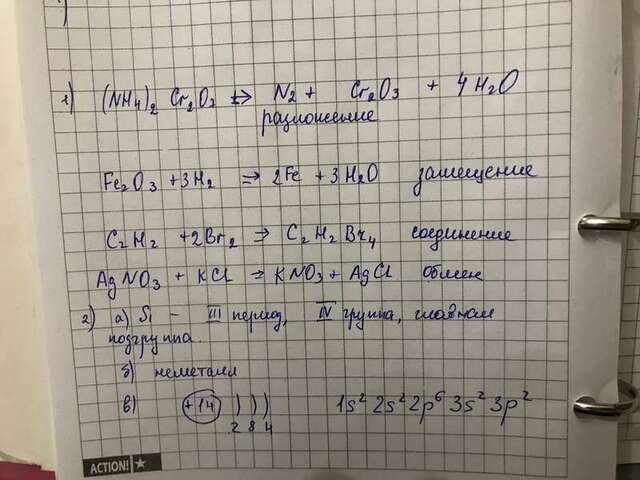 1) (NH4)2 Cr2O7 => N2 + Cr2O3 + 4H2O
разложение
Fe2O3 + 3H2 => 2Fe + 3H2O замещение
C2H2 + 2Br2 => C2H2Br4 соединение
AgNO3 + KCl → KNO3 + AgCl обмен
2) а) Si - III период, IV группа, главная
подгруппа.
б) неметалл
в) +14 ) ) )
2 8 4
1s² 2s² 2p⁶ 3s² 3p²
ACTION!